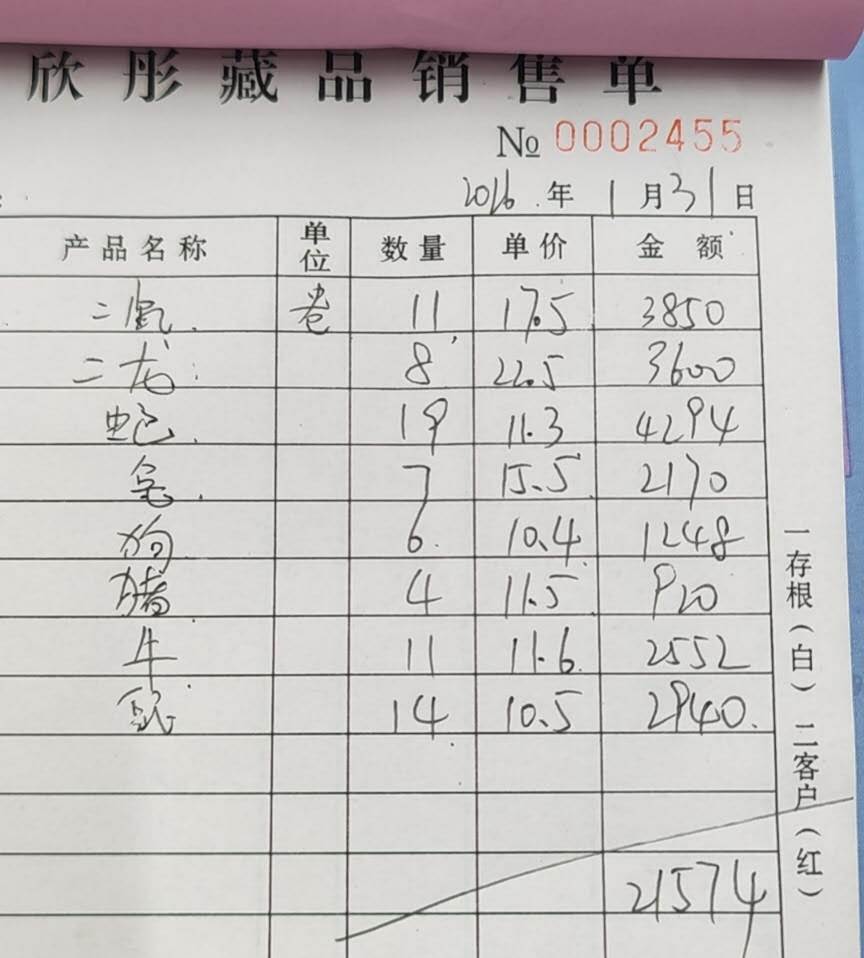 欣彤藏品销售单
№ 0002455
2026 年 1 月 31 日
产品名称 单位 数量 单价 金额
二鼠 卷 11 17.5 3850
二龙 8 22.5 3600
蛇 19 11.3 4294
兔 7 15.5 2170
狗 6 10.4 1248
猪 4 11.5 920
牛 11 11.6 2552
14 10.5 2940
21574
一存根(白) 二客户(红)